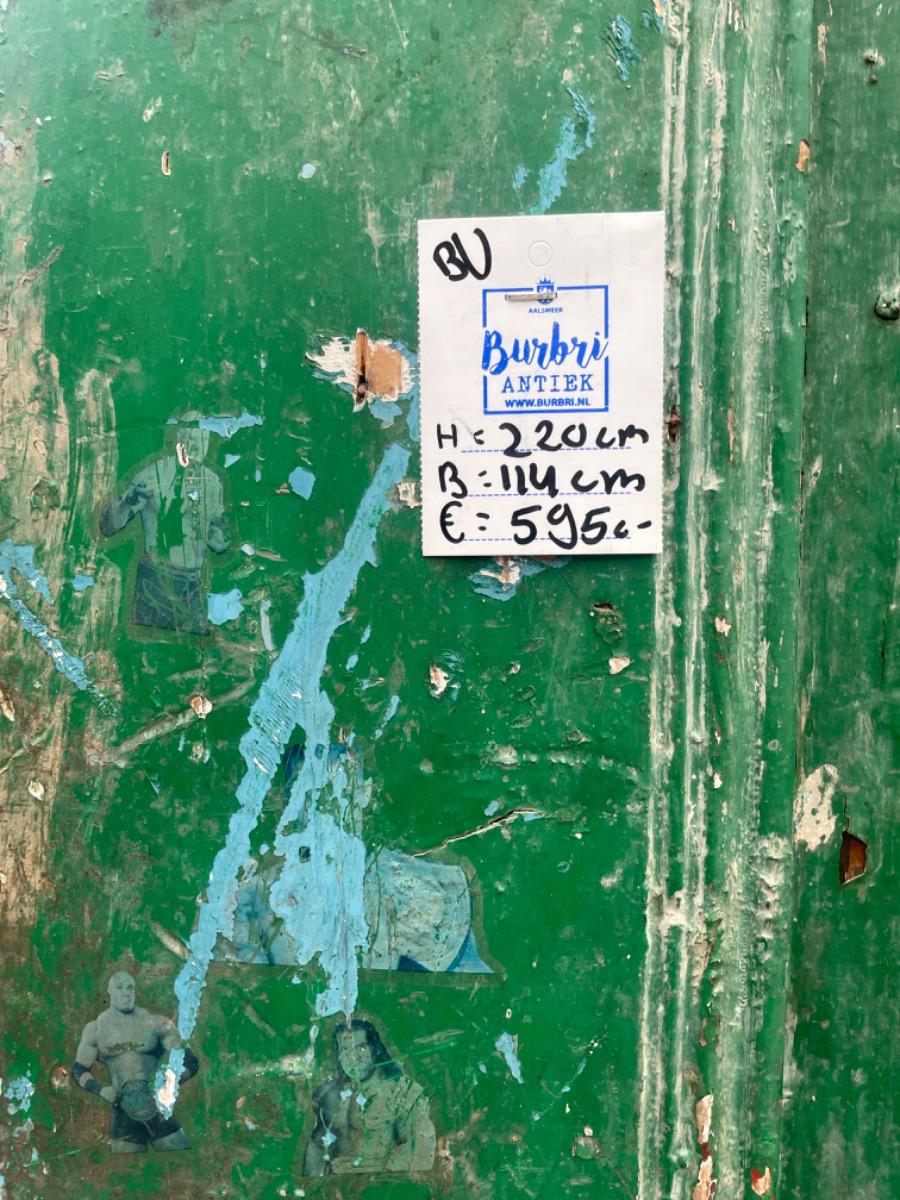 BU
AALSMEER
Burbri
ANTIEK
WWW.BURBRI.NL
H = 220cm
B = 114cm
€ = 595,-